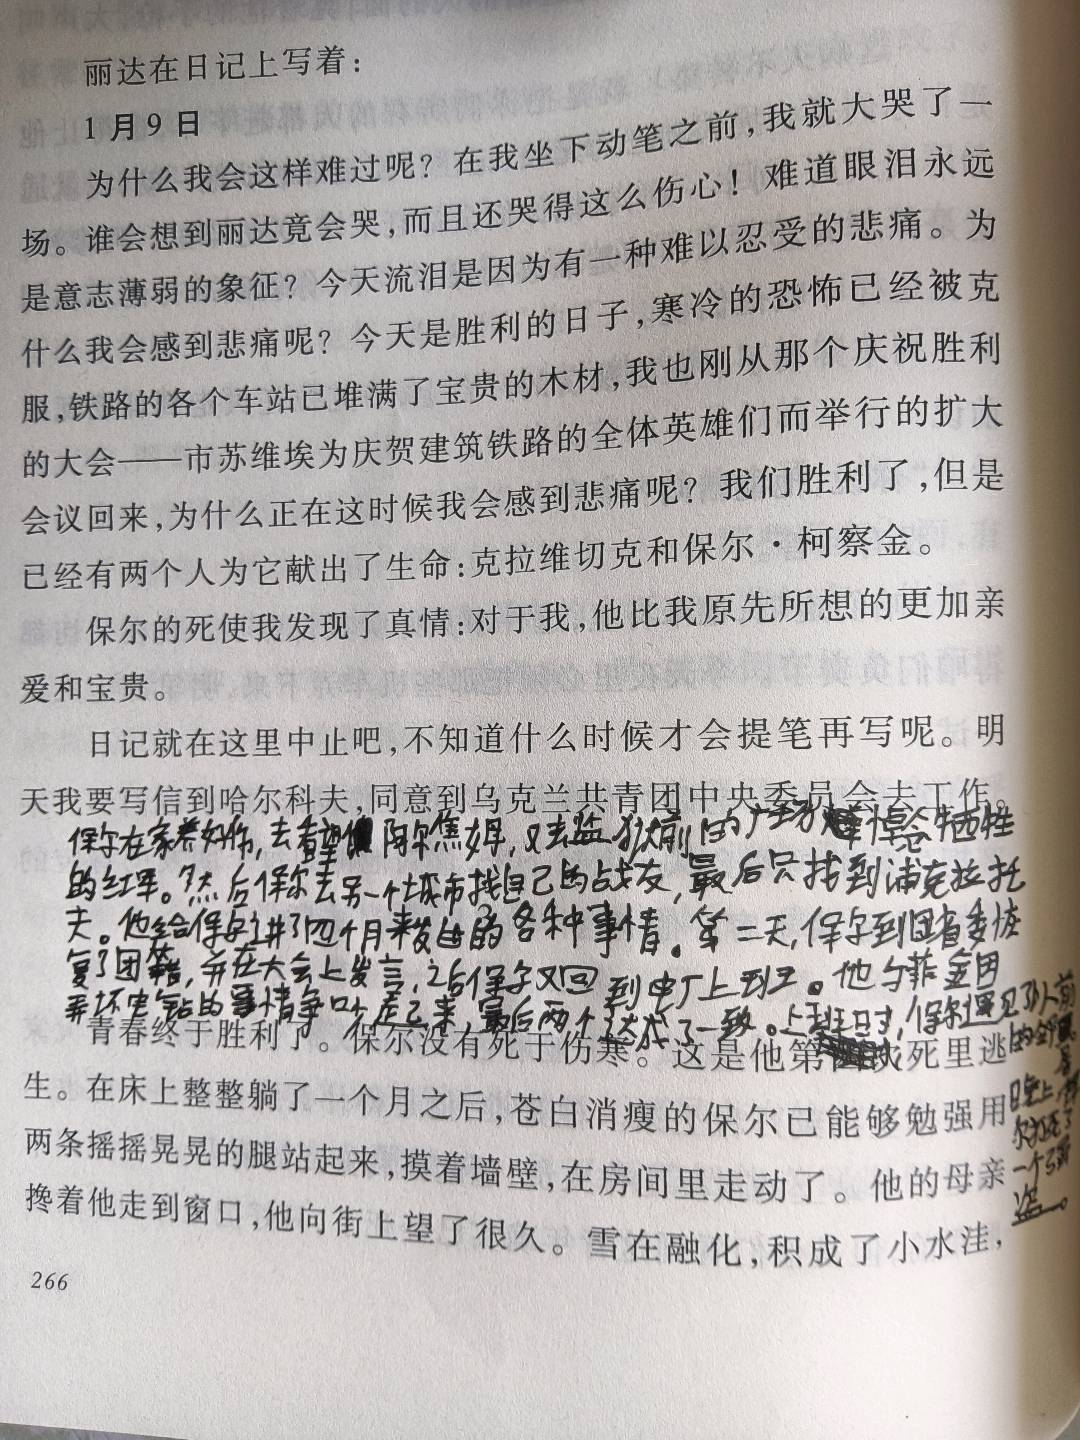 丽达在日记上写着：
1月9日
为什么我会这样难过呢？在我坐下动笔之前，我就大哭了一
场。谁会想到丽达竟会哭，而且还哭得这么伤心！难道眼泪永远
是意志薄弱的象征？今天流泪是因为有一种难以忍受的悲痛。为
什么我会感到悲痛呢？今天是胜利的日子，寒冷的恐怖已经被克
服，铁路的各个车站已堆满了宝贵的木材，我也刚从那个庆祝胜利
的大会——市苏维埃为庆贺建筑铁路的全体英雄们而举行的扩大
会议回来，为什么正在这时候我会感到悲痛呢？我们胜利了，但是
已经有两个人为它献出了生命：克拉维切克和保尔·柯察金。
保尔的死使我发现了真情：对于我，他比我原先所想的更加亲
爱和宝贵。
日记就在这里中止吧，不知道什么时候才会提笔再写呢。明
天我要写信到哈尔科夫，同意到乌克兰共青团中央委员会去工作。
保尔在家养好伤，去看望 阿尔焦姆，又去监狱前的广场 悼念牺牲
的红军。然后保尔去另一个城市找自己的战友，最后只找到浦克拉托
夫。他给保尔讲了四个月来发生的各种事情。第二天，保尔到团省委恢
复了团籍，并在大会上发言，之后保尔又回到电厂上班。他与菲金因
弄坏电钻的事情争吵起来，最后两个人达成了一致。上班时，保尔遇见了以前
的邻
日晚上
尔
一个
盗。
青春终于胜利了。保尔没有死于伤寒。这是他第四次死里逃
生。在床上整整躺了一个月之后，苍白消瘦的保尔已能够勉强用
两条摇摇晃晃的腿站起来，摸着墙壁，在房间里走动了。他的母亲
搀着他走到窗口，他向街上望了很久。雪在融化，积成了小水洼，
266